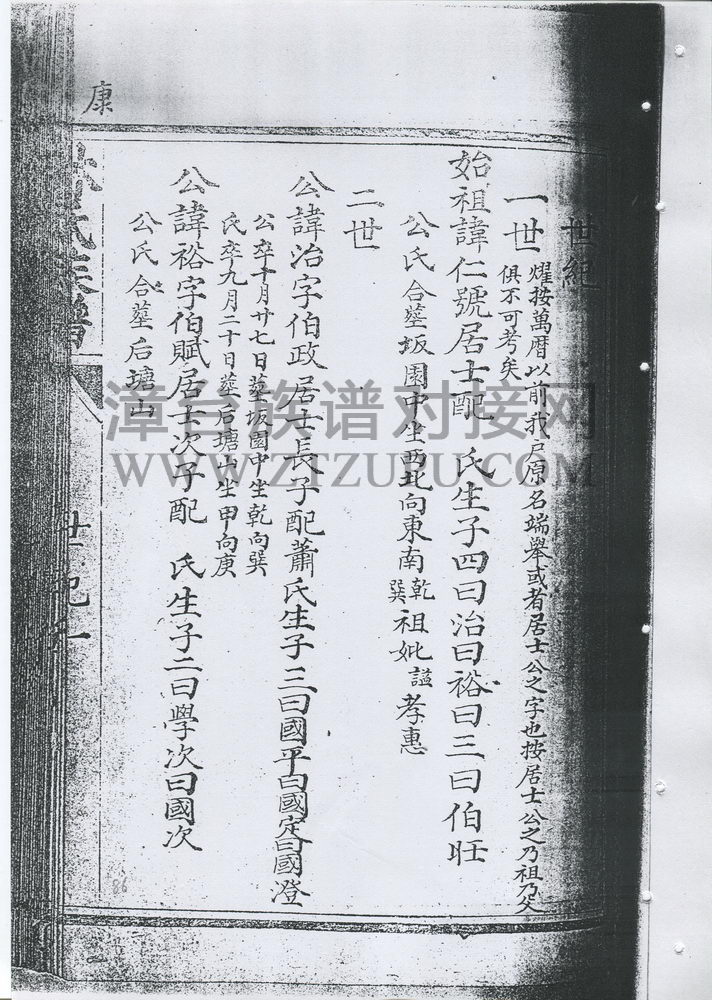 世紀
一世
耀按萬曆以前我尸原名端舉或者居士公之字也按居士公之乃祖乃父
俱不可考矣
始祖諱仁號居士配 氏生子四曰治曰裕曰三曰伯旺
公氏合塟坂園中坐西北向東南乾巽祖妣諡孝惠
二世
公諱治字伯政居士長子配蕭氏生子三曰國平曰國定曰國澄
公卒十月廿七日塟坂園中坐乾向巽
氏卒九月二十日塟后塘山坐甲向庚
公諱裕字伯賦居士次子配 氏生子二曰學次曰國次
公氏合塟后塘山
氏族譜
世紀
康
86
漳台族谱对接网
WWW.ZTZUPU.COM